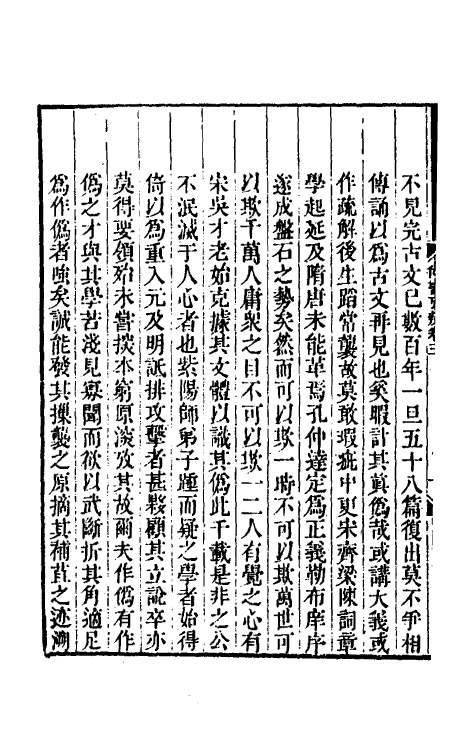 不見完古文已數百年一旦五十八篇復出莫不爭相
傳誦以為古文再見也奚暇計其真偽哉或講大義或
作疏解後生蹈常襲故莫敢瑕疵中更宋齊梁陳詞章
學起延及隋唐未能革焉孔仲達定為正義勒布庠序
遂成盤石之勢矣然而可以欺一時不可以欺萬世可
以欺千萬人庸衆之目不可以欺一二人有覺之心有
宋吳才老始克據其文體以議其偽此千載是非之公
不泯滅于人心者也紫陽師弟子踵而疑之學者始得
倚以為重入元及明詆排攻擊者甚夥顧其立說卒亦
莫得要領殆未嘗探本窮原深攷其故爾夫作偽有作
偽之才與其學苦淺見寡聞而欲以武斷折其角適足
為作偽者嗤矣誠能發其摷襲之原摘其補苴之迹溯